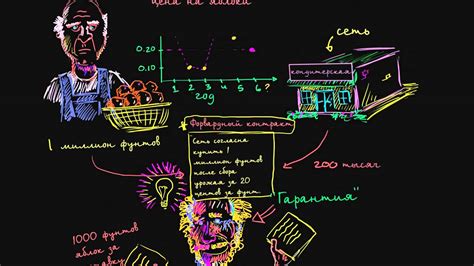 цена на яблоки
0.20
0.10
1 2 3 4 5 6?
год
сеть
кондитерская
1 миллион фунтов
Форвардный контракт
Сеть согласна
купить 1
миллион фунтов
после сбора
урожая за 20
центов за фунт.
200 тысяч
"Гарантия"
1000 фунтов
яблок за